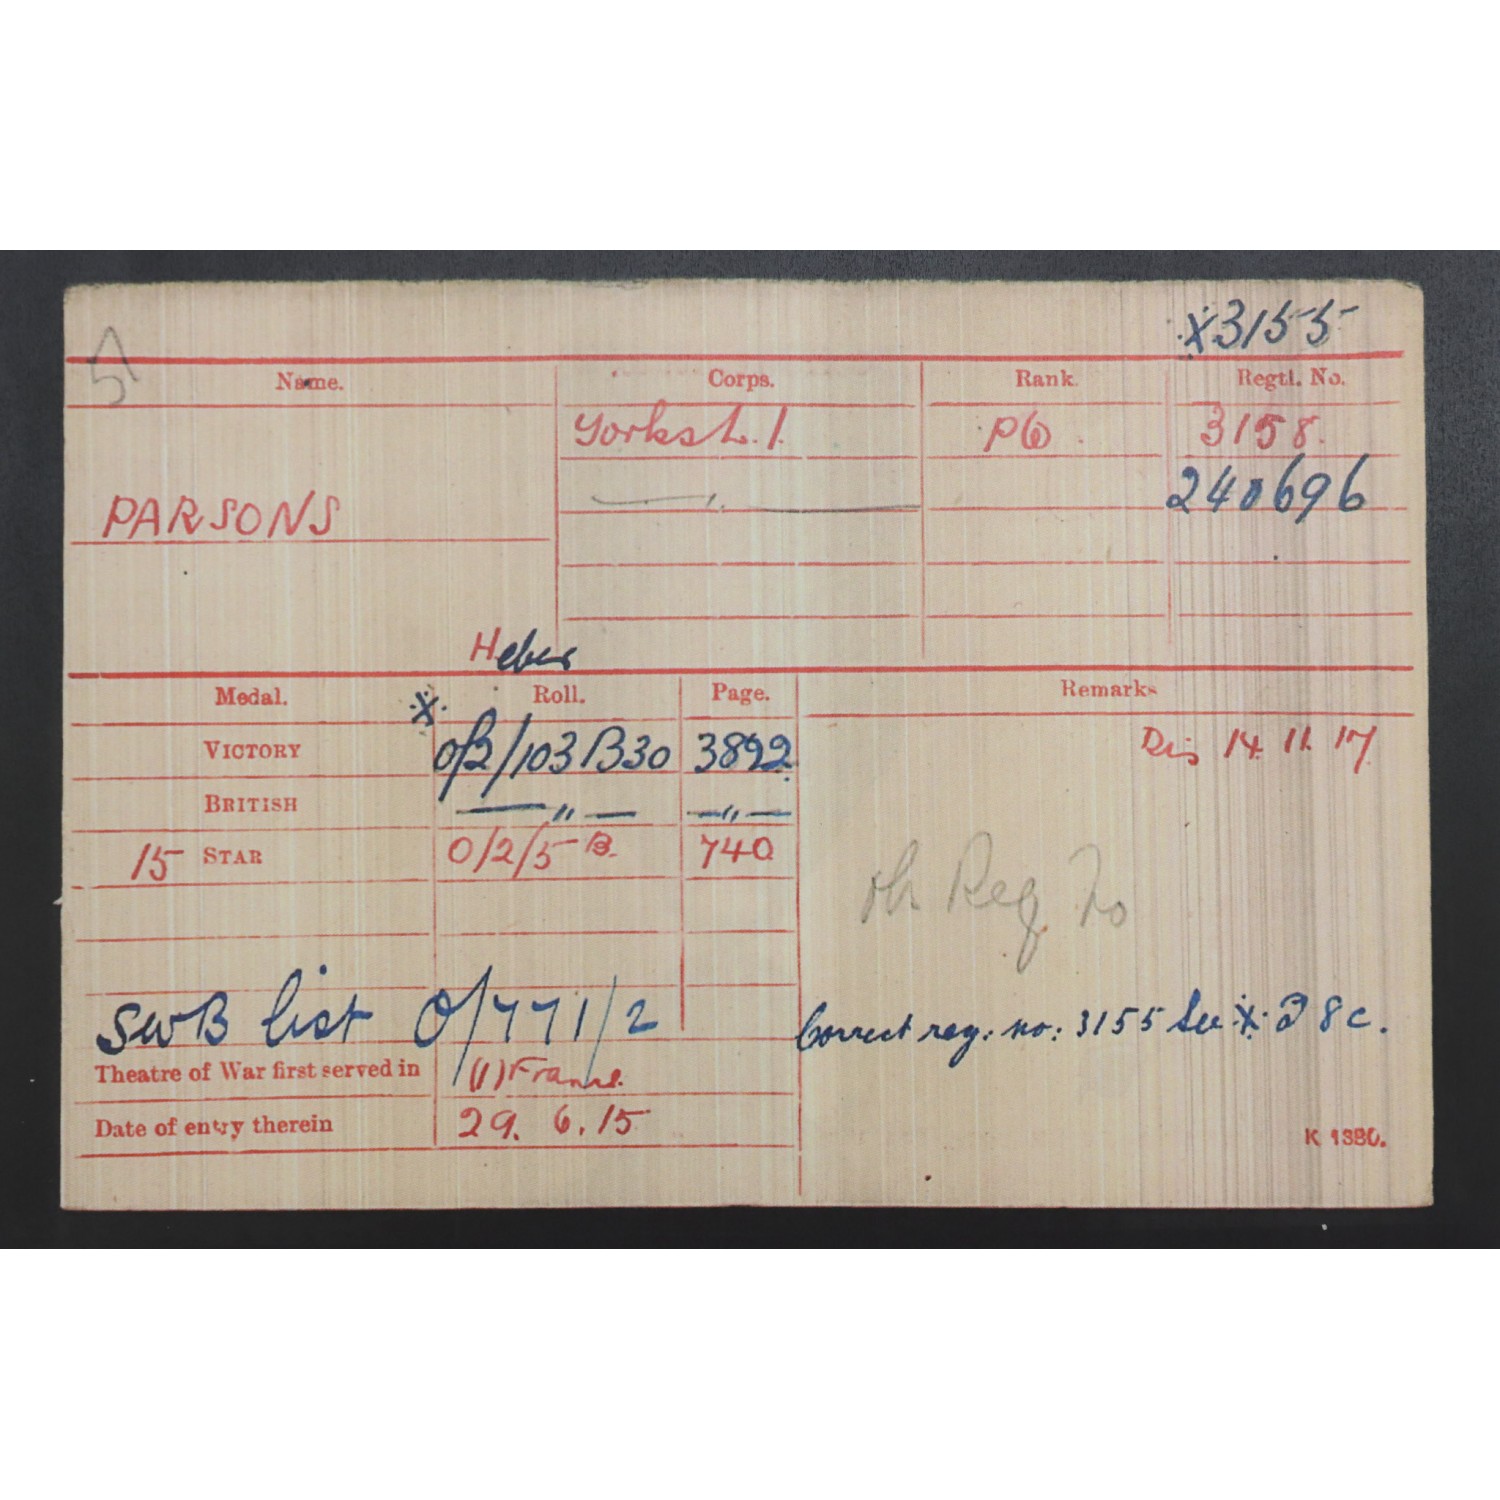 x 3155
Name. Corps. Rank. Regtl. No.
Yorks L.I. 3158.
PARSONS — " — 240696
Heber
Medal. Roll. Page. Remarks
x
VICTORY O/2/103 B30 3892 Dis 14 11 17
BRITISH — " — — " —
15 STAR O/2/5 B. 740
Reg No
SWB list O/771/2 Correct reg: no: 3155 See x B 8 c.
Theatre of War first served in (1) France.
Date of entry therein 29. 6. 15
K 1380.